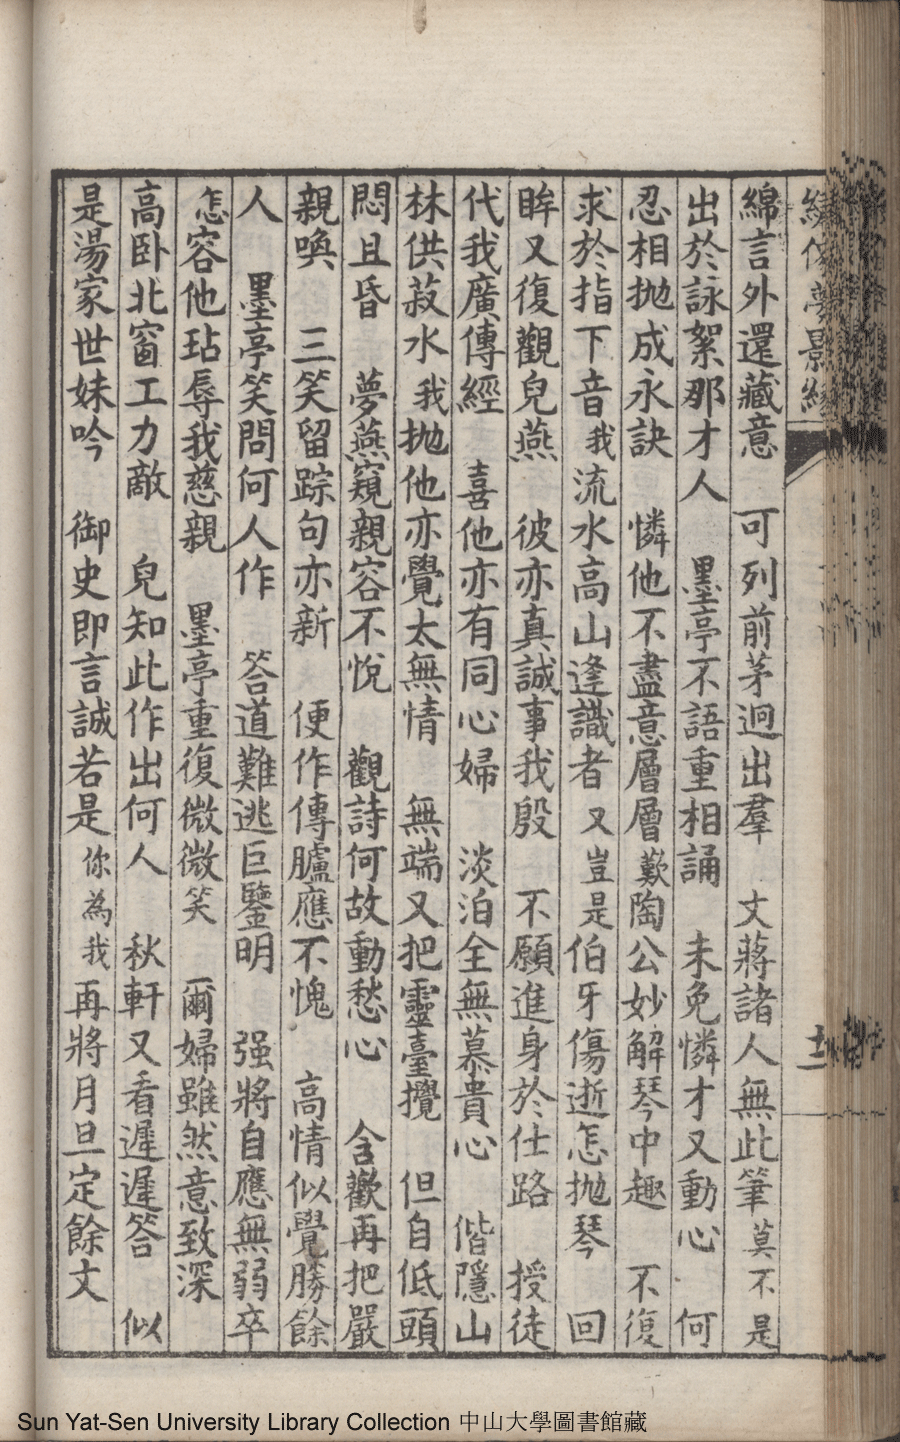 繡像夢景緣
十一
綿言外還藏意　可列前茅迥出羣　丈蔣諸人無此筆莫不是
出於詠絮那才人　墨亭不語重相誦　未免憐才又動心　何
忍相拋成永訣　憐他不盡意層層歎陶公妙解琴中趣　不復
求於指下音我流水高山逢識者又豈是伯牙傷逝怎拋琴　回
眸又復觀兒燕　彼亦真誠事我殷　不願進身於仕路　授徒
代我廣傳經　喜他亦有同心婦　淡泊全無慕貴心　偕隱山
林供菽水我拋他亦覺太無情　無端又把靈臺攪　但自低頭
悶且昏　夢燕窺親容不悅　觀詩何故動愁心　含歡再把嚴
親喚　三笑留踪句亦新　便作傳臚應不愧　高情似覺勝餘
人　墨亭笑問何人作　答道難逃巨鑒明　强將自應無弱卒
怎容他玷辱我慈親　墨亭重復微微笑　爾婦雖然意致深
高卧北窗工力敵　兒知此作出何人　秋軒又看遲遲答　似
是湯家世妹吟　御史即言誠若是你為我再將月旦定餘文
Sun Yat-Sen University Library Collection 中山大學圖書館藏